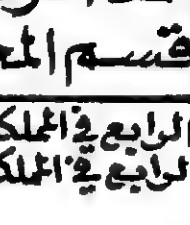 قسم الم
الرابع في المملك
الرابع في المملك